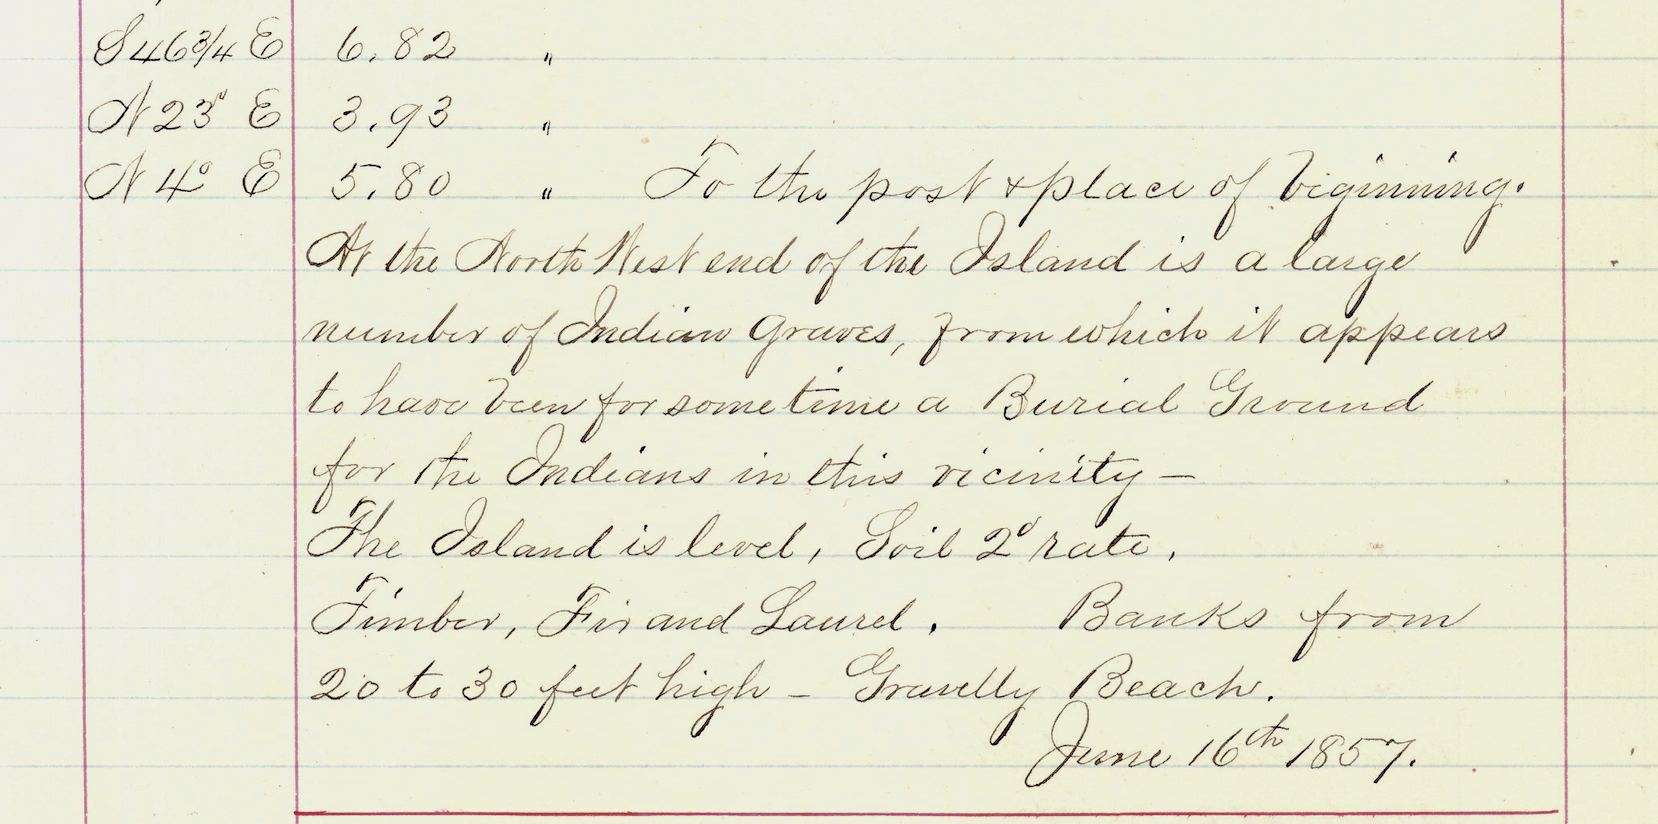 S 46 3/4 E 6.82 "
N 23° E 3.93 "
N 4° E 5.80 " To the post & place of beginning.
At the North West end of the Island is a large
number of Indian Graves, from which it appears
to have been for some time a Burial Ground
for the Indians in this vicinity —
The Island is level, Soil 2d rate.
Timber, Fir and Laurel. Banks from
20 to 30 feet high — Gravelly Beach.
June 16th 1857.